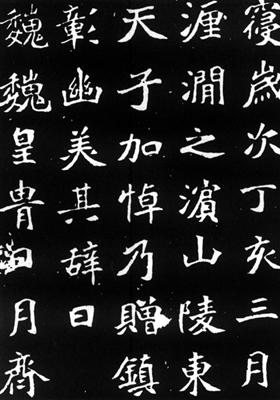 寢歲次丁亥三月
瀍澗之濱山陵東
天子加悼乃贈鎮
彰幽美其辭曰
巍巍皇胄日月齊